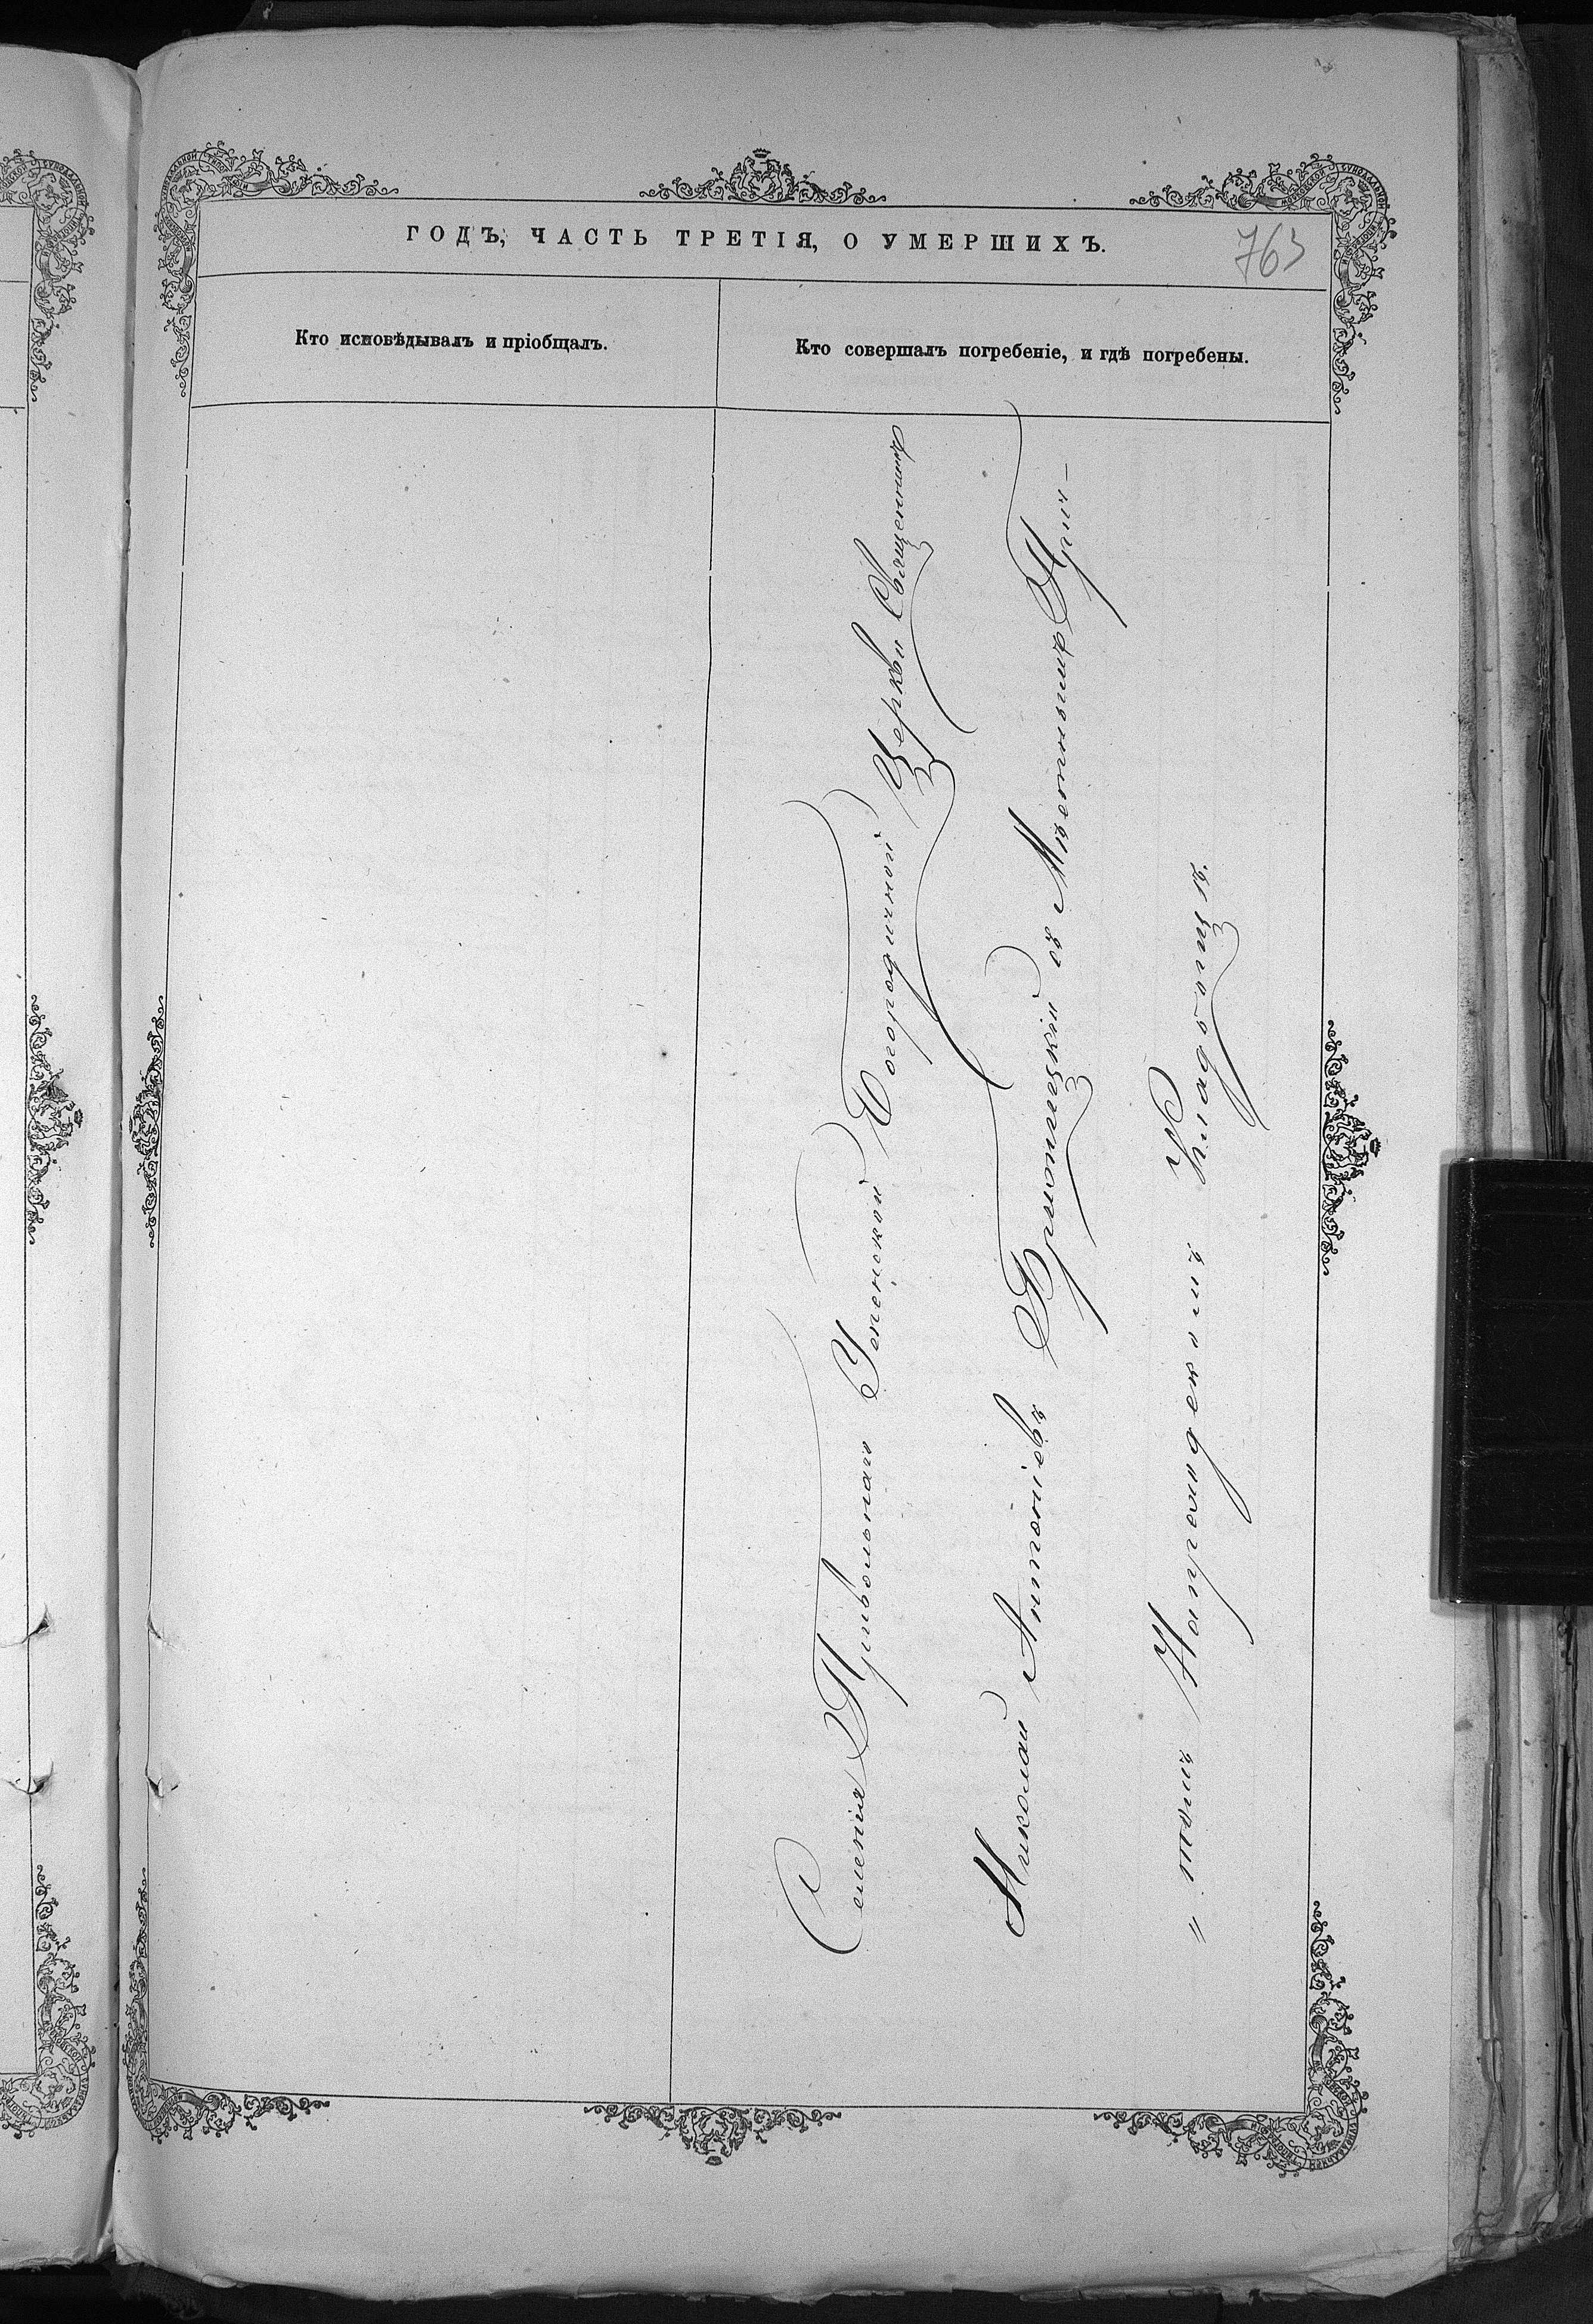 ГОДЪ, ЧАСТЬ ТРЕТІЯ, О УМЕРШИХЪ.
763
Кто исповѣдывалъ и пріобщалъ.
Кто совершалъ погребеніе, и гдѣ погребены.
Селенія Привольнаго Успенской Богородичной Церкви Священникъ
Николай Антоніевъ съ Мѣстнымъ Прич-
" томъ на Приходскомъ Кладбищѣ.